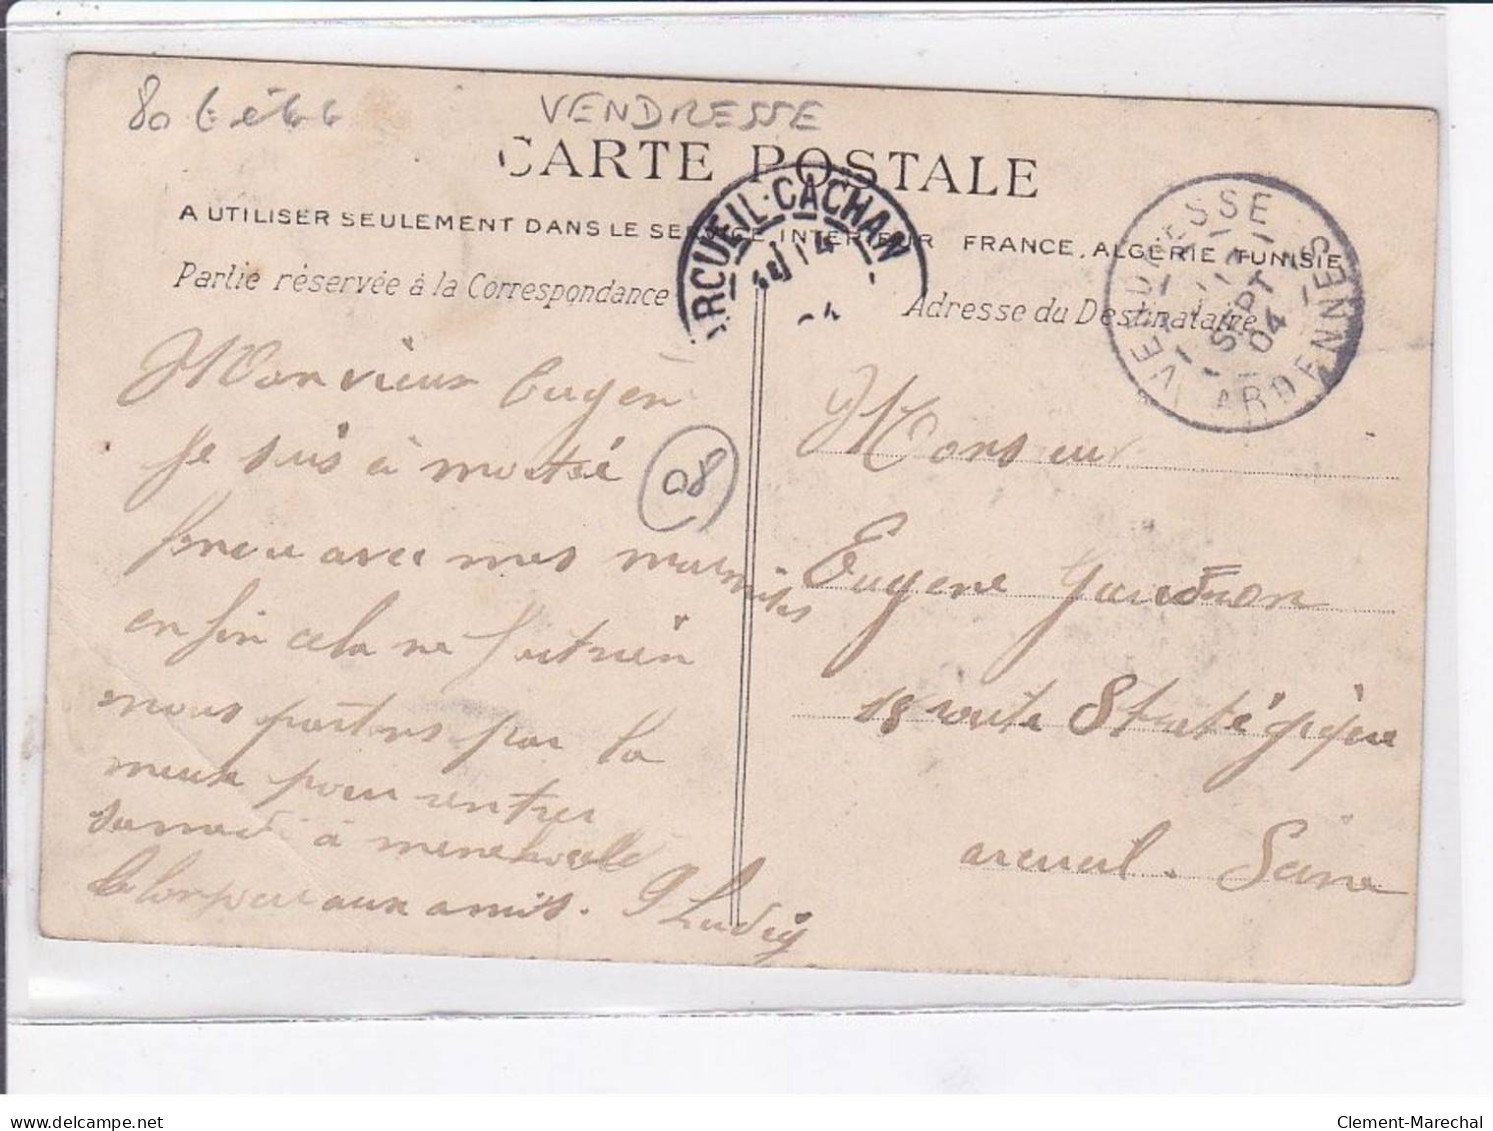 80
VENDRESSE
CARTE POSTALE
A UTILISER SEULEMENT DANS LE SERVICE INTERIEUR FRANCE, ALGÉRIE TUNISIE
Partie réservée à la Correspondance
Adresse du Destinataire
ARCUEIL-CACHAN
14
VENDRESSE
SEPT
04
ARDENNES
Mon vieux Eugene
je suis à moitié
08
avec mes marmites
enfin cela ne fait rien
nous partons par la
pour rentrer
samedi à menehould
aux amis. P Ludig
Monsieur
Eugene Gaudron
18 route Stratégique
arcueil. Seine
delcampe.net
Clement-Marechal